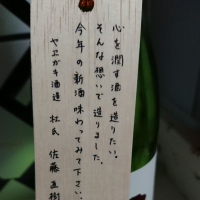 心を潤す酒を造りたい。
そんな想いで造りました。
今年の新酒味わってみて下さい。
ヤヱガキ酒造 杜氏 佐藤直樹